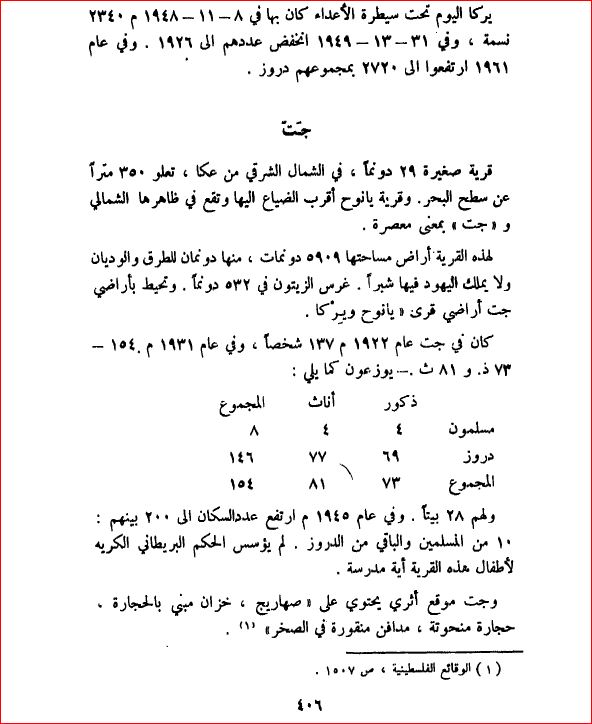 يركا اليوم تحت سيطرة الأعداء كان بها في ٨ – ١١ – ١٩٤٨ م ٢٣٤٠
نسمة ، وفي ٣١ – ١٣ – ١٩٤٩ انخفض عددهم الى ١٩٢٦ . وفي عام
١٩٦١ ارتفعوا الى ٢٧٢٠ بمجموعهم دروز .
جَتّ
قرية صغيرة ٢٩ دونماً ، في الشمال الشرقي من عكا ، تعلو ٣٥٠ متراً
عن سطح البحر. وقرية يانوح أقرب الضياع اليها وتقع في ظاهرها الشمالي
و « جت » بمعنى معصرة .
لهذه القرية أراض مساحتها ٥٩٠٩ دونمات ، منها دونمان للطرق والوديان
ولا يملك اليهود فيها شبراً . غرس الزيتون في ٥٣٢ دونماً . وتحيط بأراضي
جت أراضي قرى « يانوح ويِرْكا .
كان في جت عام ١٩٢٢ م ١٣٧ شخصاً ، وفي عام ١٩٣١ م .١٥٤ –
٧٣ ذ. و ٨١ ث .– يوزعون كما يلي :
ذكور أناث المجموع
مسلمون ٤ ٤ ٨
دروز ٦٩ ٧٧ ١٤٦
المجموع ٧٣ ٨١ ١٥٤
ولهم ٢٨ بيتاً . وفي عام ١٩٤٥ م ارتفع عددالسكان الى ٢٠٠ بينهم :
١٠ من المسلمين والباقي من الدروز . لم يؤسس الحكم البريطاني الكريه
لأطفال هذه القرية أية مدرسة .
وجت موقع أثري يحتوي على « صهاريج ، خزان مبني بالحجارة ،
حجارة منحوتة ، مدافن منقورة في الصخر» (١) .
(١) الوقائع الفلسطينية ، ص ١٥٠٧ .
٤٠٦